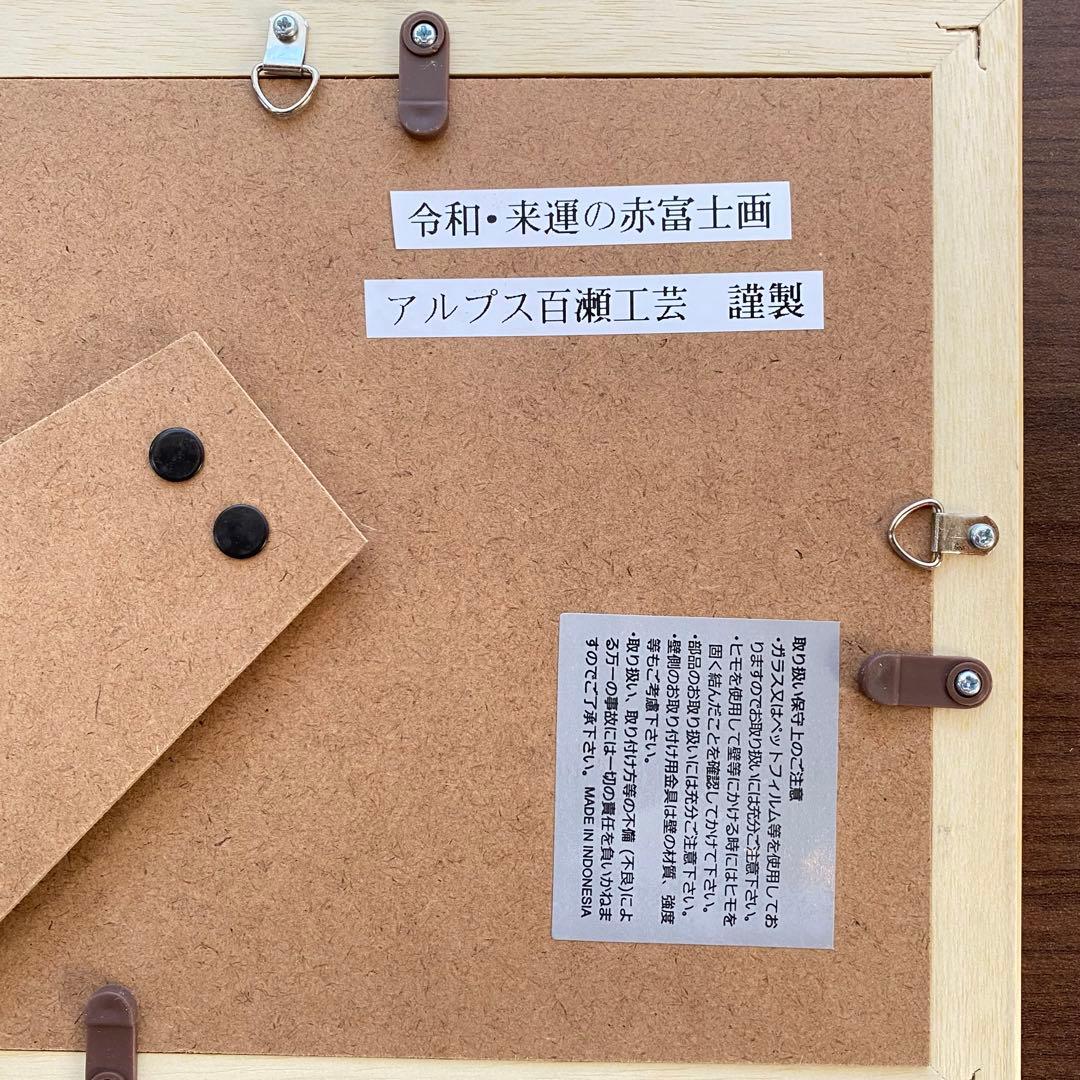 令和・来運の赤富士画
アルプス百瀬工芸　謹製
取り扱い保守上のご注意
・ガラス又はペットフィルム等を使用してお
りますのでお取り扱いには充分ご注意下さい。
・ヒモを使用して壁等にかける時にはヒモを
固く結んだことを確認してかけて下さい。
・部品のお取り扱いには充分ご注意下さい。
・壁側のお取り付け用金具は壁の材質、強度
等もご考慮下さい。
・取り扱い、取り付け方等の不備（不良）によ
る万一の事故には一切の責任を負いかねま
すのでご了承下さい。 MADE IN INDONESIA